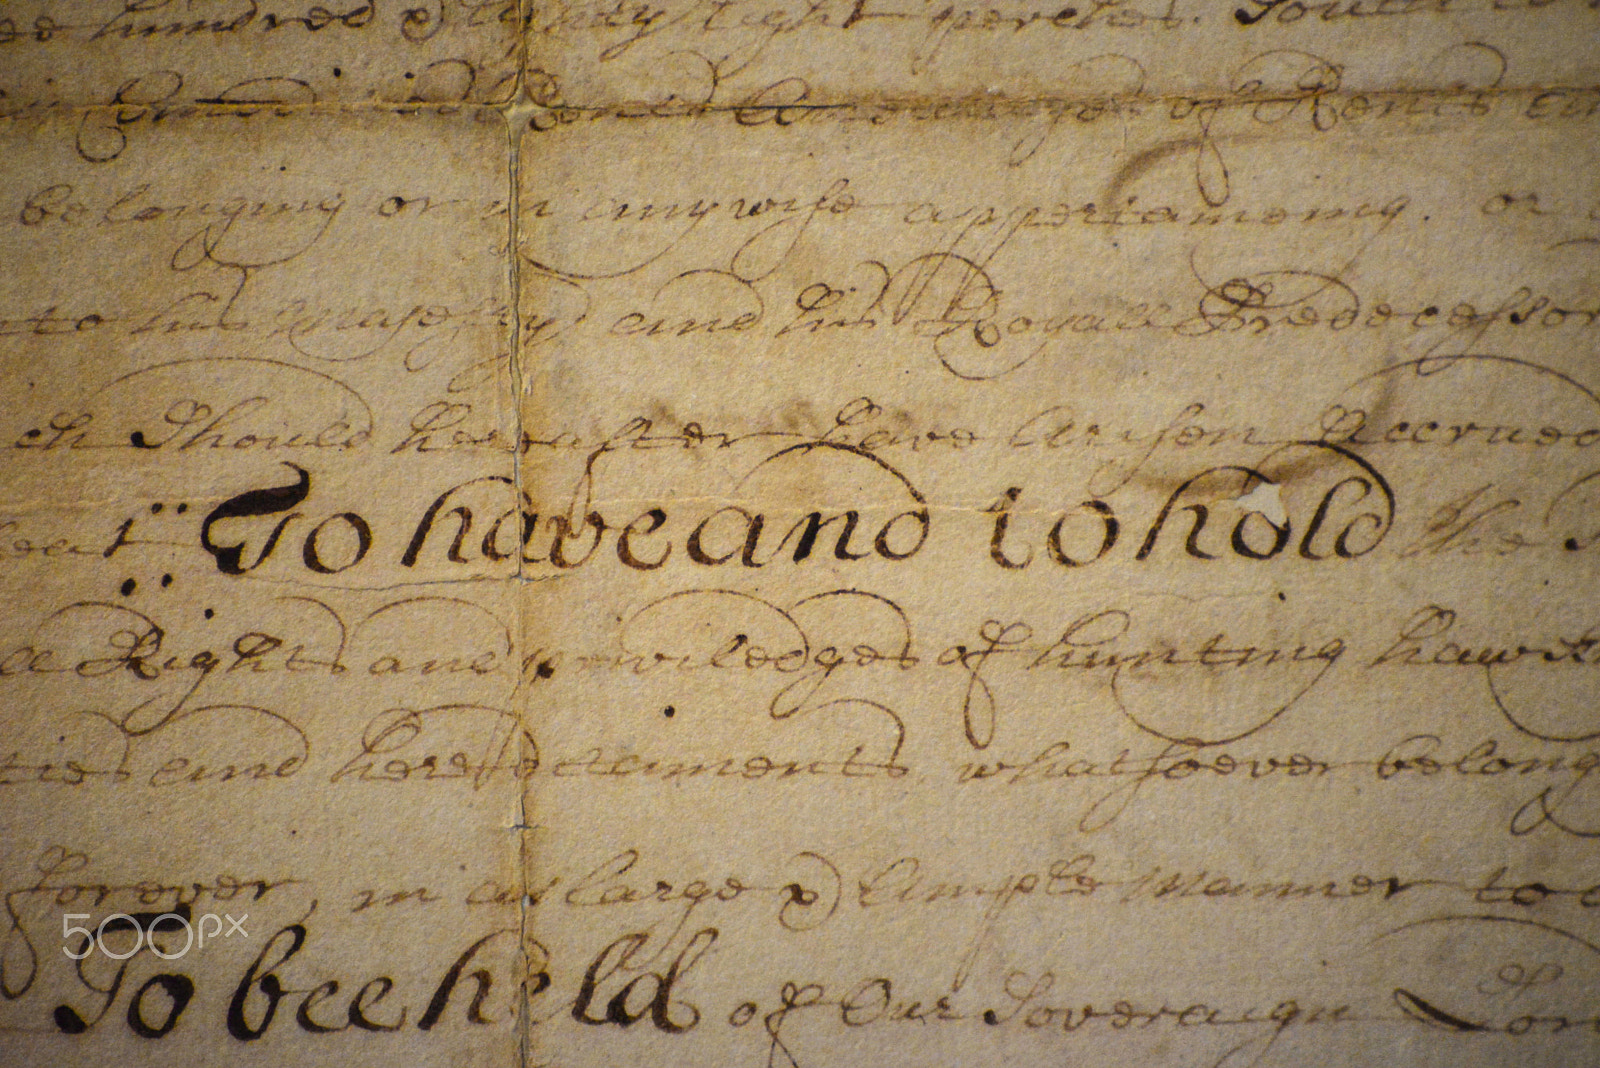 hundred & Eighty Eight perches. South
of Rents
belonging or in any wise apperteineing. or
to his Majesty and his Royall Predecessor
ch Should hereafter have Arisen Accrued
To have and to hold the
Rights and priviledges of hunting hawk
ties and hereditaments whatsoever belong
forever, in as large & Ample Manner to
To bee held of Our Soveraign Lor
500px